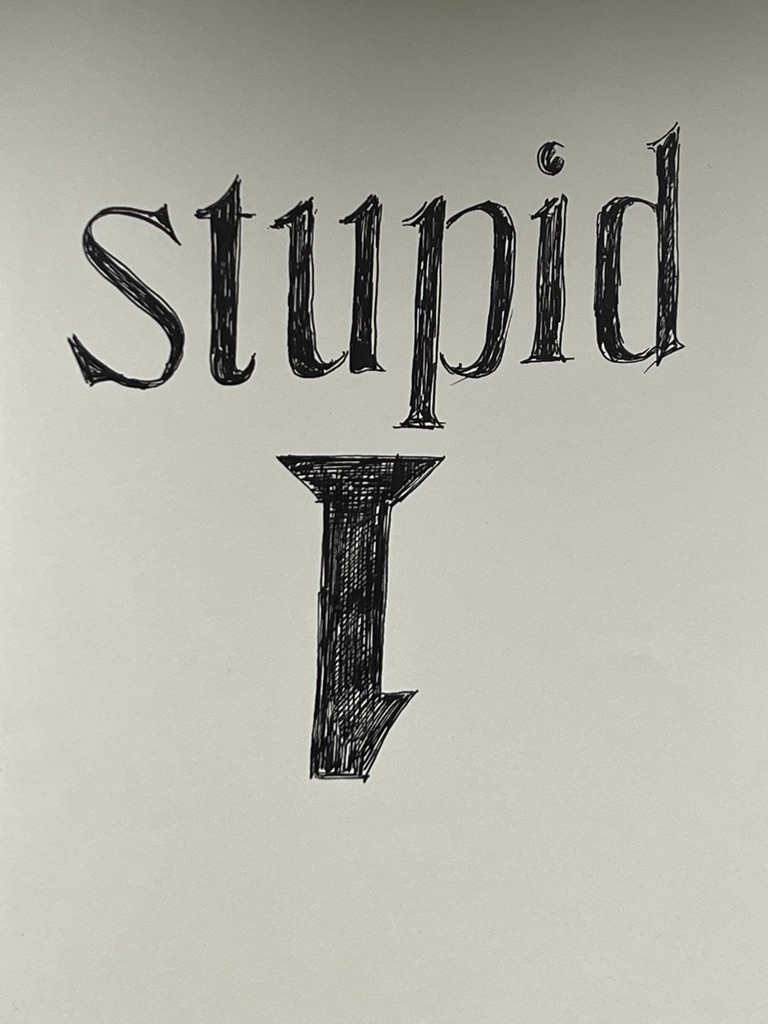 stupid
1